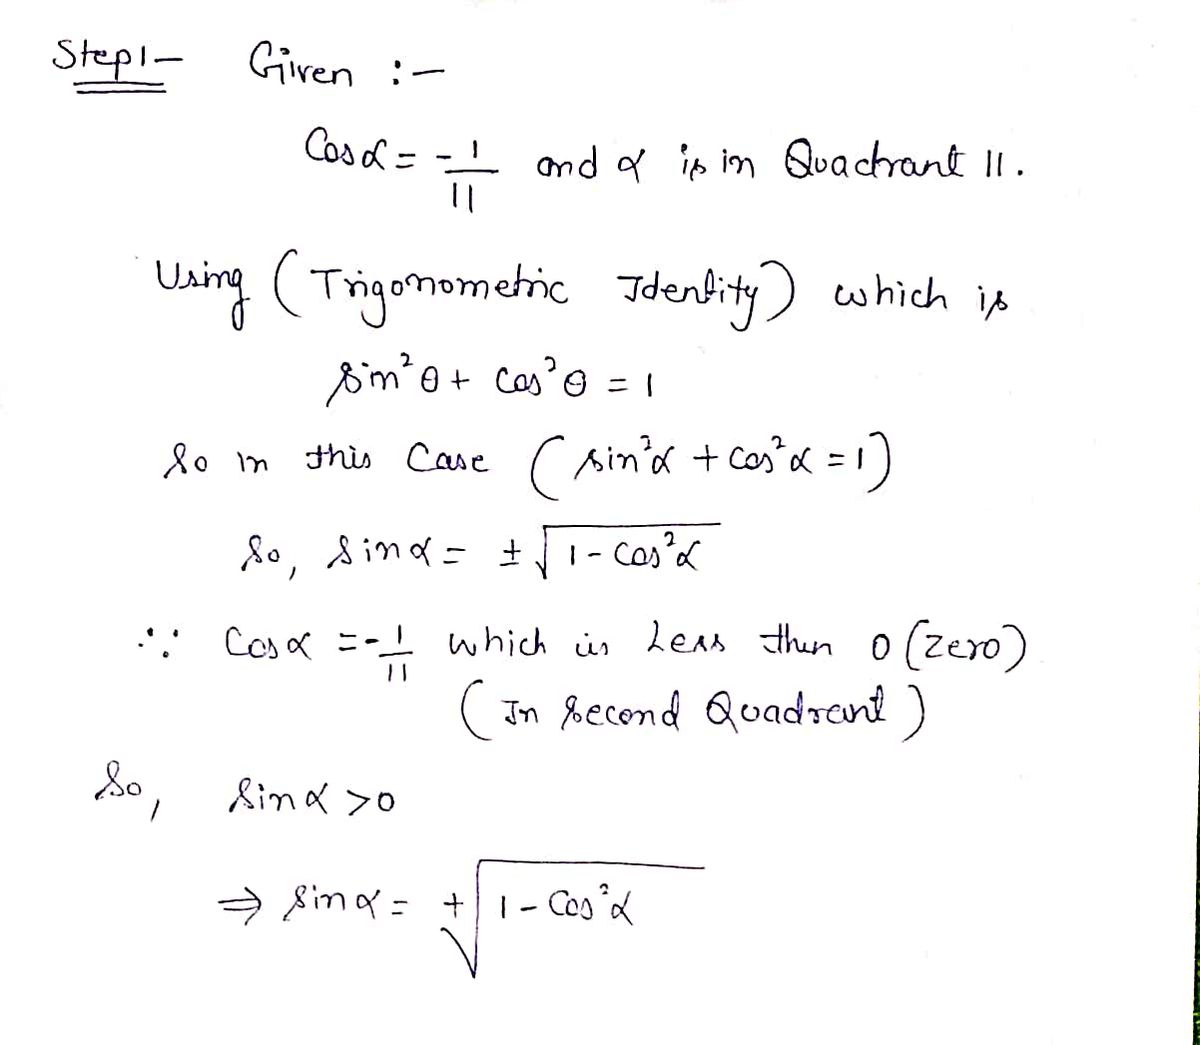 Step1- Given :-
Cosα = -1/11 and α is in Quadrant II.
Using (Trigonometric Identity) which is
sin²θ + cos²θ = 1
So in this Case (sin²α + cos²α = 1)
So, sinα = ±√1 - cos²α
∵ Cosα = -1/11 which is Less then 0 (Zero)
(In Second Quadrant)
So, Sinα >0
⇒ Sinα = +√1 - Cos²α